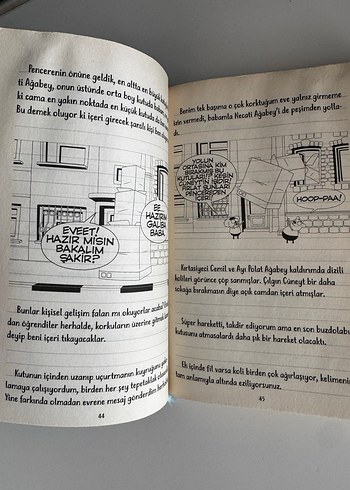 Pencerenin önüne geldik, en altta en büyük
ti Ağabey, onun üstünde orta boy kutuda
ki cama en yakın noktada en küçük kutuda
Bu demek oluyor ki içeri girecek şanslı kişi
EVEET!
HAZIR MISIN
BAKALIM
ŞAKİR?
BE..
HAZIRIM
GALİBA
BABA.
Bunlar kişisel gelişim falan mı okuyorlar acaba?
dan öğrendiler herhalde, korkuların üzerine gitmek
deyip beni içeri tıkayacaklar.
Kutunun içinden uzanıp uçurtmanın kuyruğunu
lamaya çalışıyordum, birden her şey tepetaklak
Yine farkında olmadan evrene mesaj gönderdim
44
Benim tek başıma o çok korktuğum eve yalnız girmeme
izin vermedi, babamla Necati Ağabey'i de peşimden yolla-
dı.
YOLUN
ORTASINA KİM
BIRAKMIŞ BU
KUTULARI!? KESİN
CÜNEYT'İN İŞİ BU!
FIRLAT ŞUNLARI
PENCEREDEN
İÇERİ!
HOOP-PAA!
Kırtasiyeci Cemil ve Ayı Polat Ağabey kaldırımda dizili
kolileri görünce çöp sanmışlar. Çılgın Cüneyt bir daha
sokağa bırakmasın diye açık camdan içeri atmışlar.
Süper hareketti, takdir ediyorum ama en son buzdolabı
kutusunu atmasalardı daha şık bir hareket olacaktı.
Eh içinde fil varsa koli birden çok ağırlaşıyor, kelimenin
tam anlamıyla altında eziliyorsunuz.
45